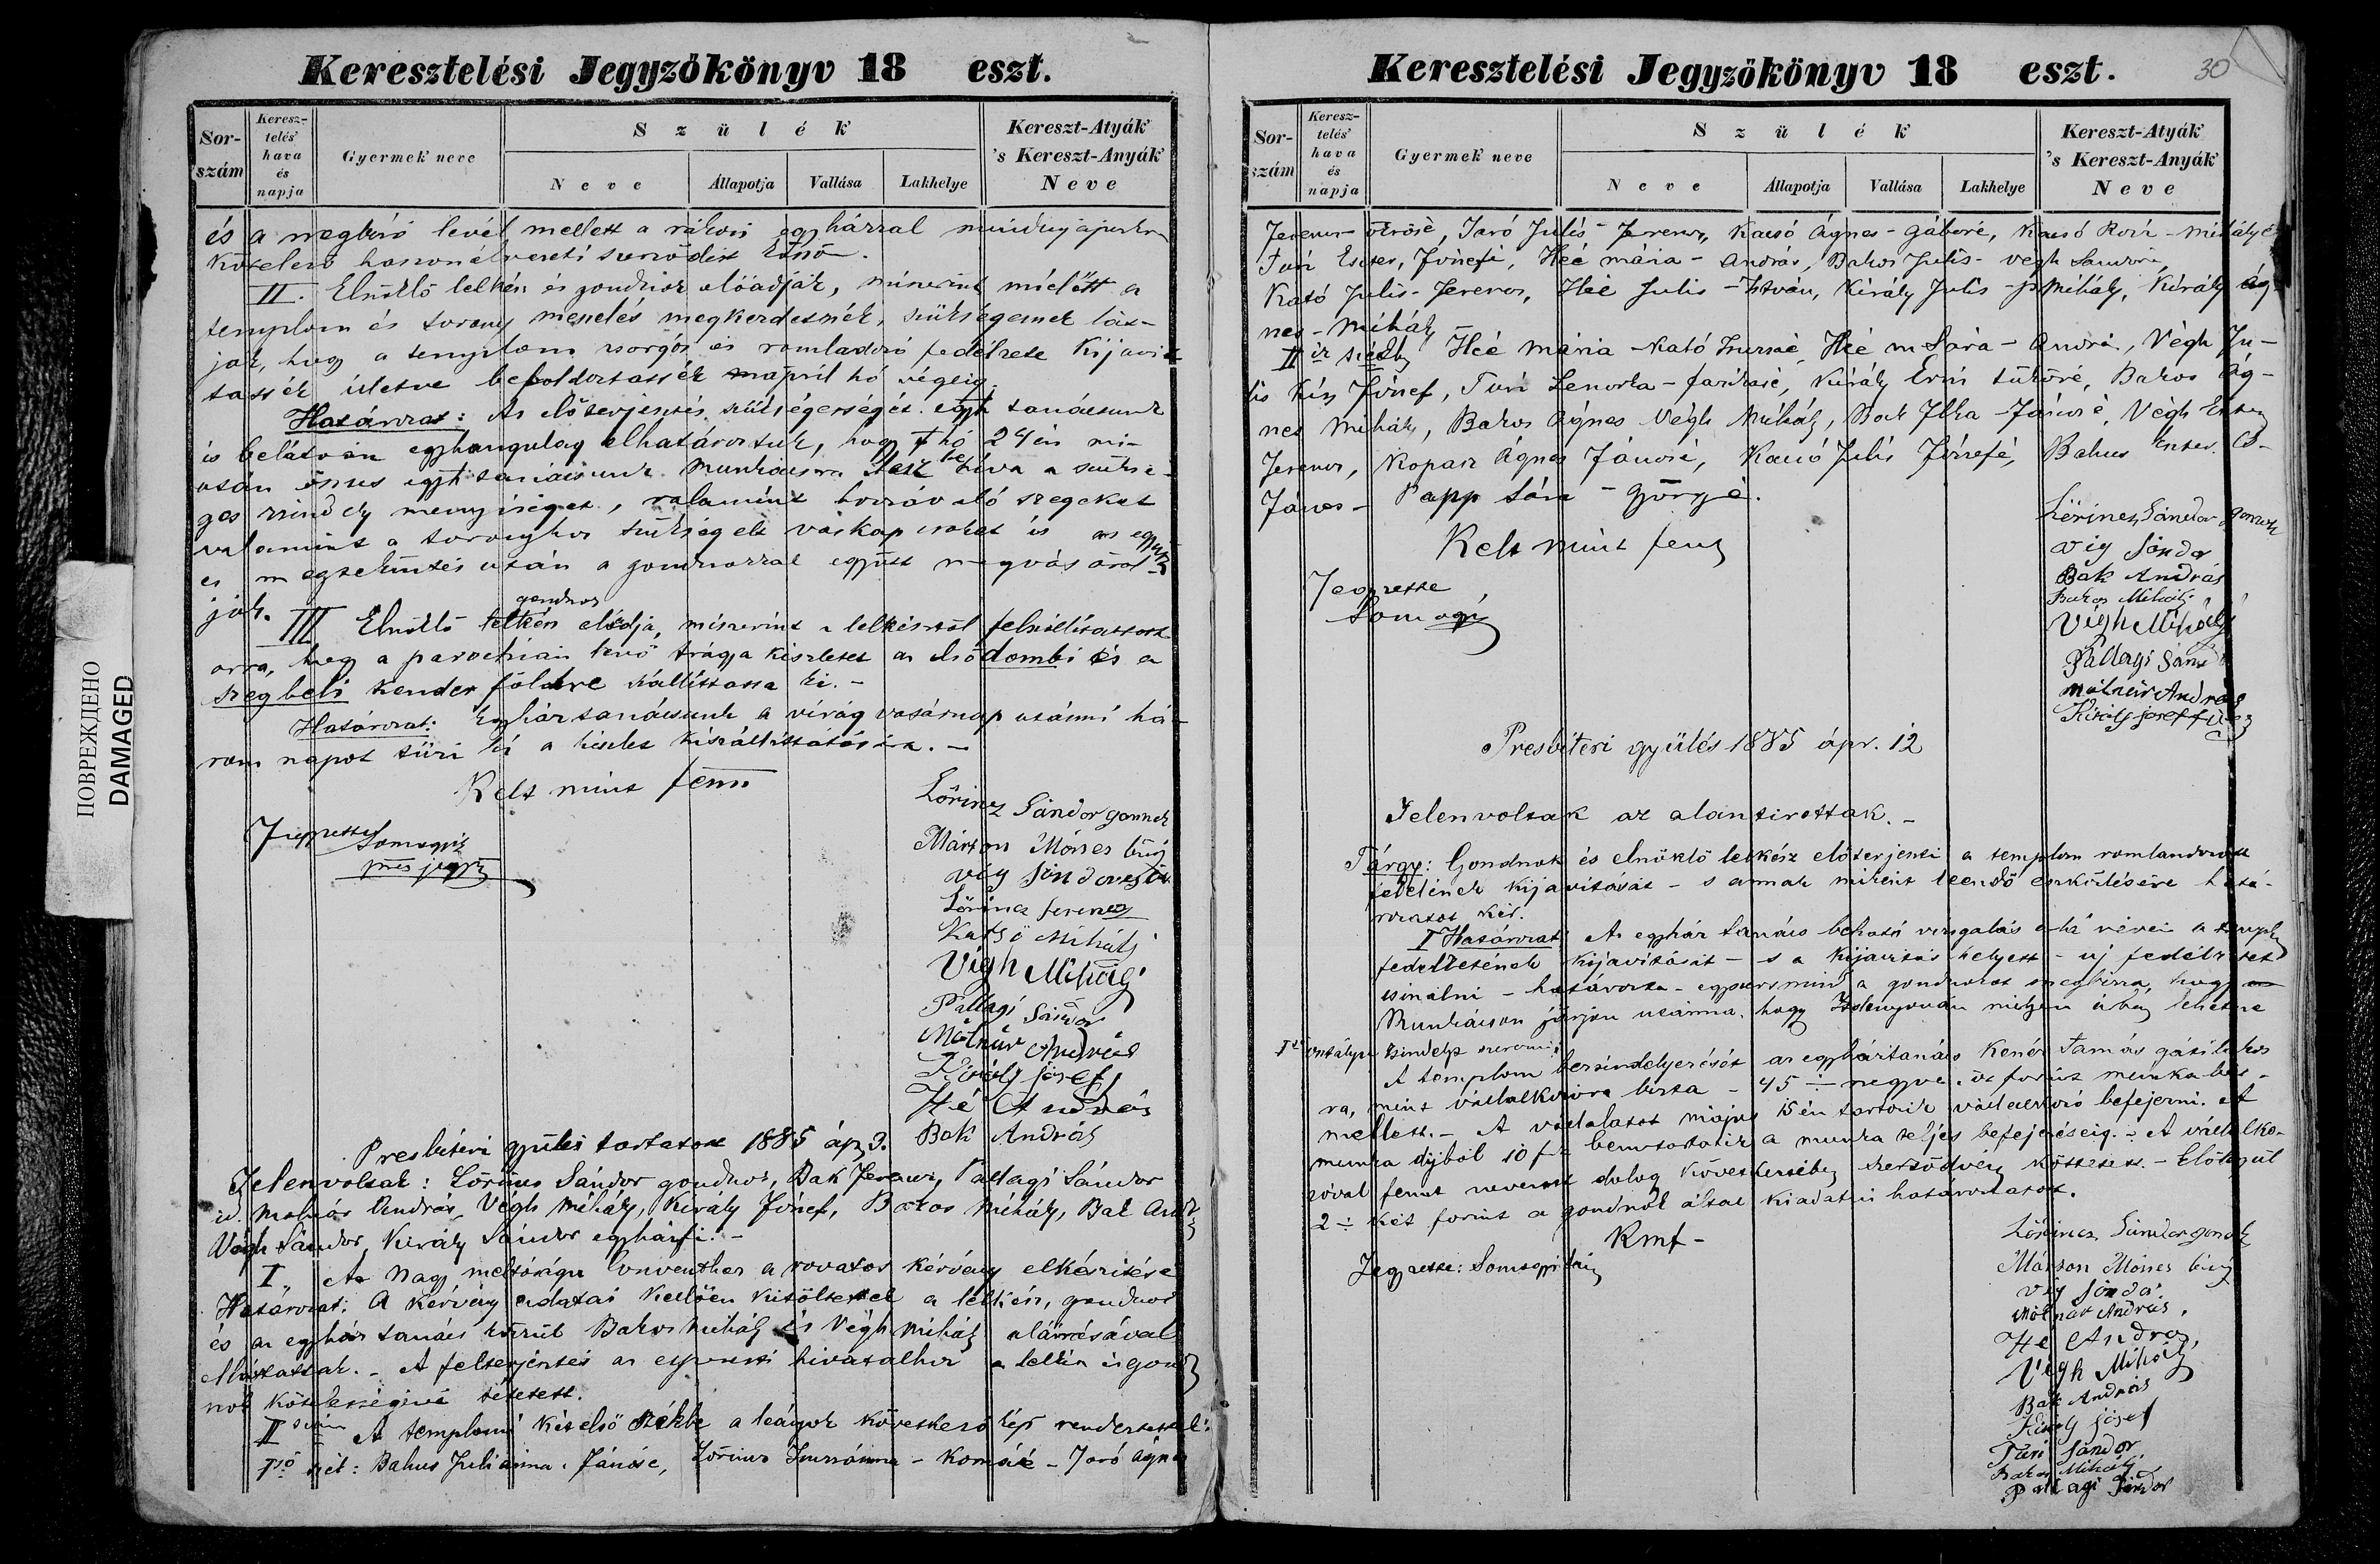 Keresztelési Jegyzőkönyv 18 eszt.
Sor-
szám
Keresz-
telés'
hava
és
napja
Gyermek neve
Szülék
Neve
Állapotja
Vallása
Lakhelye
Kereszt-Atyák
's Kereszt-Anyák
Neve
és a megbiró levél mellett a rákosi egyházzal
kötelező haszonélvezeti szerződést
II. Elnöklő lelkész és gondnok előadják, miszerint mielőtt a
templom és torony meszelés megkezdetnék, szükségesnek lát-
ják, hogy a templom csorgós és romladozó fedélzete kijavit-
tassék illetve befoldoztassék april hó végeig.
Határozat: Az előterjesztés szükségességét egyh tanácsunk
is belátván egyhangulag elhatároztuk, hogy f hó 24én mi-
után összes egyh tanácsunk Munkácsra lesz be hiva a szüksé-
ges zsindely menyiséget, valamint hozzávaló szegeket
valamint a toronyhoz szükségelt vaskapcsokat is az egyház
és megtekintés után a gondnokkal együtt megvásárol-
ják.
III Elnöklő lelkész gondnok előadja, miszerint a lelkésztől felszóllíttatott
arra, hogy a parochián levő trágya készletet az alsó dombi és a
szegbeli kender földre szállíttassa ki. -
Határozat: Egyháztanácsunk a virág vasárnap utánni há-
rom napot tűzi ki a készlet kiszállíttatására. -
Kelt mint fenn
Jegyzette Somogyi
pres jegyző
Lőrincz Sándor gonnok
Márton Mózses biró
vig Sándor
Lőrincz ferencz
Katsó Mihály
Végh Mihály
Pallagi Sándor
Mólnár András
Király józsef
Hé András
Bak András
Presbiteri gyülés tartatott 1885 áp 3.
Jelenvoltak: Lőrincz Sándor gondnok, Bak Ferencz, Pallagi Sándor
id. Molnár András, Végh Mihály, Király József, Bakos Mihály, Bak And
Végh Sándor, Király Sándor egyházfi. -
I. A Nagy méltóságu Conventhez a rovatos kérvény elkészitése
Határozat: A kérvény adatai kellően kitöltettek a lelkész, gondnok
és az egyház tanács közül Bakos Mihály és Végh Mihály aláirásával
elláttattak. - A felterjesztés az esperesti hivatalhoz a lelkész és gond
nok kötelességévé tétetett.
II A templomi két első székbe a leányok következőkép rendeztettek:
Iső szék: Bakus Juliánna Jánosé, Lőrincz Zsuzsánna - Komáé - Jaró Ágnes
Keresztelési Jegyzőkönyv 18 eszt.
30
Sor-
szám
Keresz-
telés'
hava
és
napja
Gyermek neve
Szülék
Neve
Állapotja
Vallása
Lakhelye
Kereszt-Atyák
's Kereszt-Anyák
Neve
Ferencz Jaró Julis - Ferencz, Kacsó Ágnes - Gáboré, Kacsó - Mihályé
Turi Eszter, Józsefé, Heé mária - András, Bakos Julis - végh Sandoré
Kató Julis - Ferencz, Heé Julis - István, Király Julis - Mihály, Király Ág-
nes - Mihály
IIik szék Heé mária - Kató Heé Sára - Andrá, Végh Ju-
lis József, Turi Lenorka - Király Erzsi Bakos Ág-
nes Mihály, Bakos Ágnes Végh Mihály, Bak Ilka - Jánosé, Végh Eszter
Ferencz, Kopasz Ágnes Jánosé, Kacsó Julis Józsefé, Bakus Eszter
János - Papp Sára - György é.
Kelt mint fenn
Jegyzette
Somogyi
Lőrincz Sándor gonnok
vig Sándor
Bak András
Bakos Mihály
Végh Mihály
Pallagi Sand
mólnár András
Király josef
Presbiteri gyülés 1885 ápr. 12
Jelenvoltak az alantirottak. -
Tárgy: Gondnok és elnöklő lelkész előterjeszti a templom romlandozott
fedelének kijavitását - s annak miként leendő eszközlésére hatá-
rozatot kér.
I Határozat A egyház tanács beható vizsgálás alá vévén a templ
fedelzetének kijavitását - s a kijavitás helyett - uj fedélzetet
csinálni - határozta - egyszersmind a gondnokot megbizza, hogy
Munkácson járjon utánna, hogy milyen árba lehetne
I osztályu zsindelyt szerezni.
A templom bezsindelyezését az egyháztanács Kenéz Tamás gáti lakos
ra, mint vállalkozóra bizta - 45 negyven öt forint munka bér
mellett. - A vállalatot május 15én tartozik vállalkozó befejezni. A
munka dijból 10 frt benntartatik a munka teljes befejezéseig. - A vállalko-
zóval fennt nevezett dolog következtében szerződvény köttetett. - Előlegül
2 két forint a gondnok által kiadatni határoztatott.
Kmf -
Jegyzette: Somogyi
Lőrincz Sándor gonok
Márton Mózses biró
vig Sándor
Mólnár András
Hé András
Végh Mihály
Bak András
Király józsef
Turi Sándor
Bakos Mihály
Pallagi Sándor
ПОВРЕЖДЕНО
DAMAGED